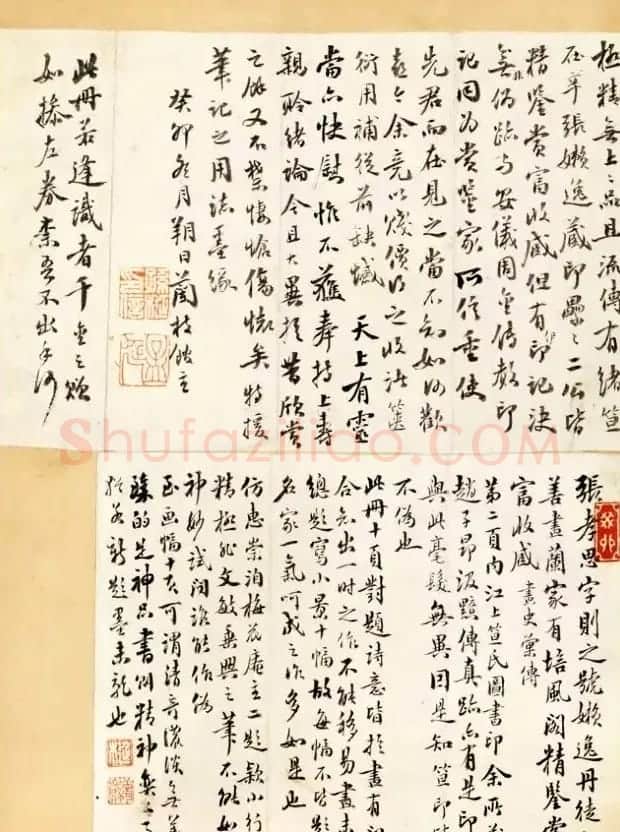 極精無上之品且流傳有緒笪
張嬾逸藏印二公皆
精鑒賞富收藏但有印記決
無偽跡与安儀周印
記同為賞鑒家所信重使
先君而在見之當不知如何歡
喜今余竟以賤價得之收諸篋
衍用補從前缺憾 天上有靈
當亦快慰惟不獲奉持上壽
親聆緒論今且大異於昔欣賞
之餘又不禁悽愴傷懷矣特援
筆記之用誌墨緣
癸卯冬月朔日蘭枝館主
此冊若逢識者千金之貺
如操左券柰吾不出手何
張孝思字則之號嬾逸丹徒
善畫蘭家有培風閣精鑒賞
富收藏 畫史彙傳
第二頁内江上笪氏圖書印余所藏
趙子昂汲黯傳真跡亦有是印
與此毫髮無異因是知笪印
不偽也
此冊十頁對題詩意皆於畫有
合亦出一時之作不能移易畫末
總題寫小景十幅故每幅不皆題
名家一氣呵成之作多如是也
仿惠崇泊梅花庵主二題款小行
精極非文敏乘興之筆不能如
神妙試問誰能作偽
至畫幅十頁可謂清奇濃淡無美
臻的是神品書側精神奕
若新題墨未乾也
癸卯
Shufaziliao.COM